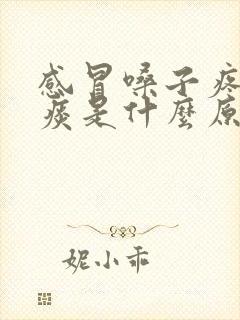 感冒嗓子疼
痰是什麼原
妮小乖